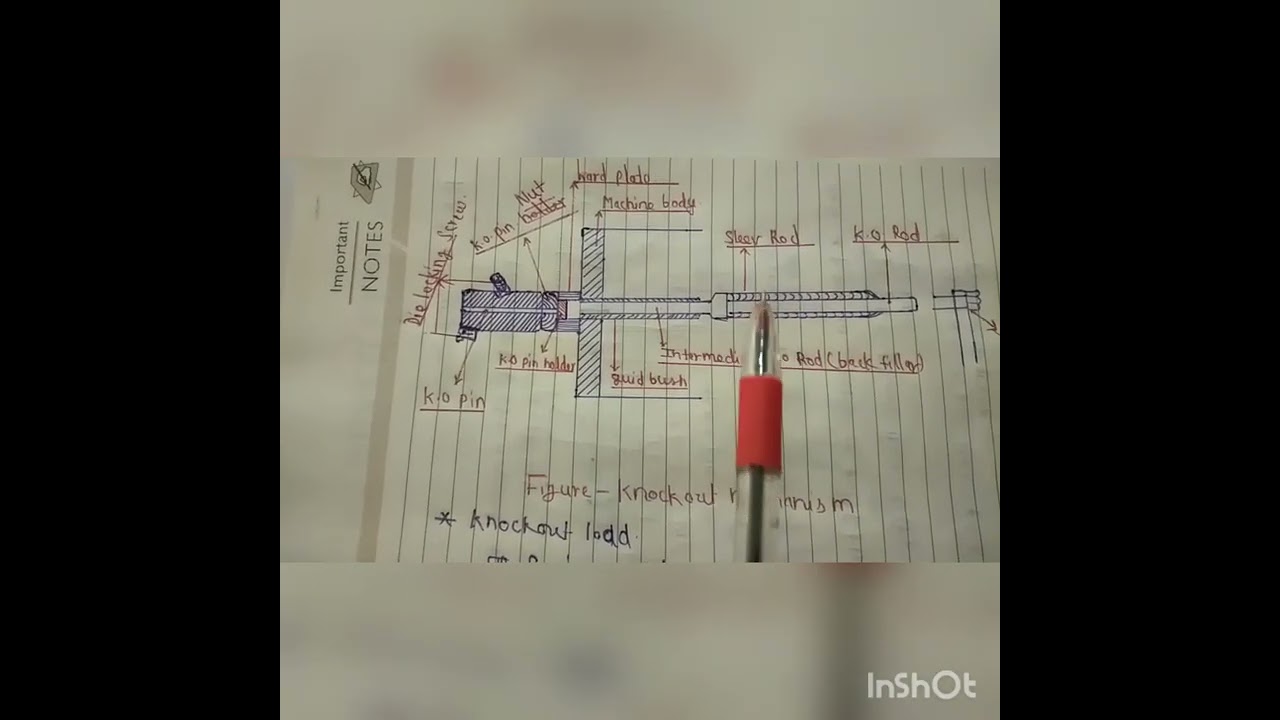 Important
NOTES
Hard plate
Nut
K.O. pin holder
Machine body
Die locking screw.
Sleev Rod
K.O Rod
K.O pin holder
Intermedi o Rod (back filler)
guid bush
K.O pin
Figure - Knockout m anism
* Knockout load.
InShOt